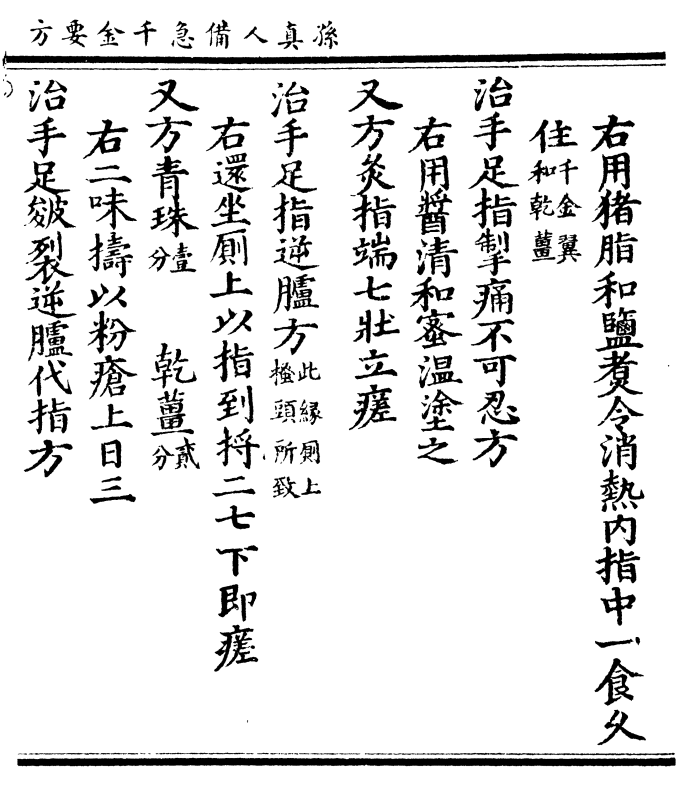 孫真人備急千金要方
右用猪脂和鹽煑令消熱内指中一食久
住千金翼和乾薑
治手足指掣痛不可忍方
右用醬清和蜜温塗之
又方灸指端七壯立瘥
治手足指逆臚方此縁厠上橃頭所致
右還坐厠上以指到捋二七下即瘥
又方青珠壹分 乾薑貳分
右二味擣以粉瘡上日三
治手足皴裂逆臚代指方